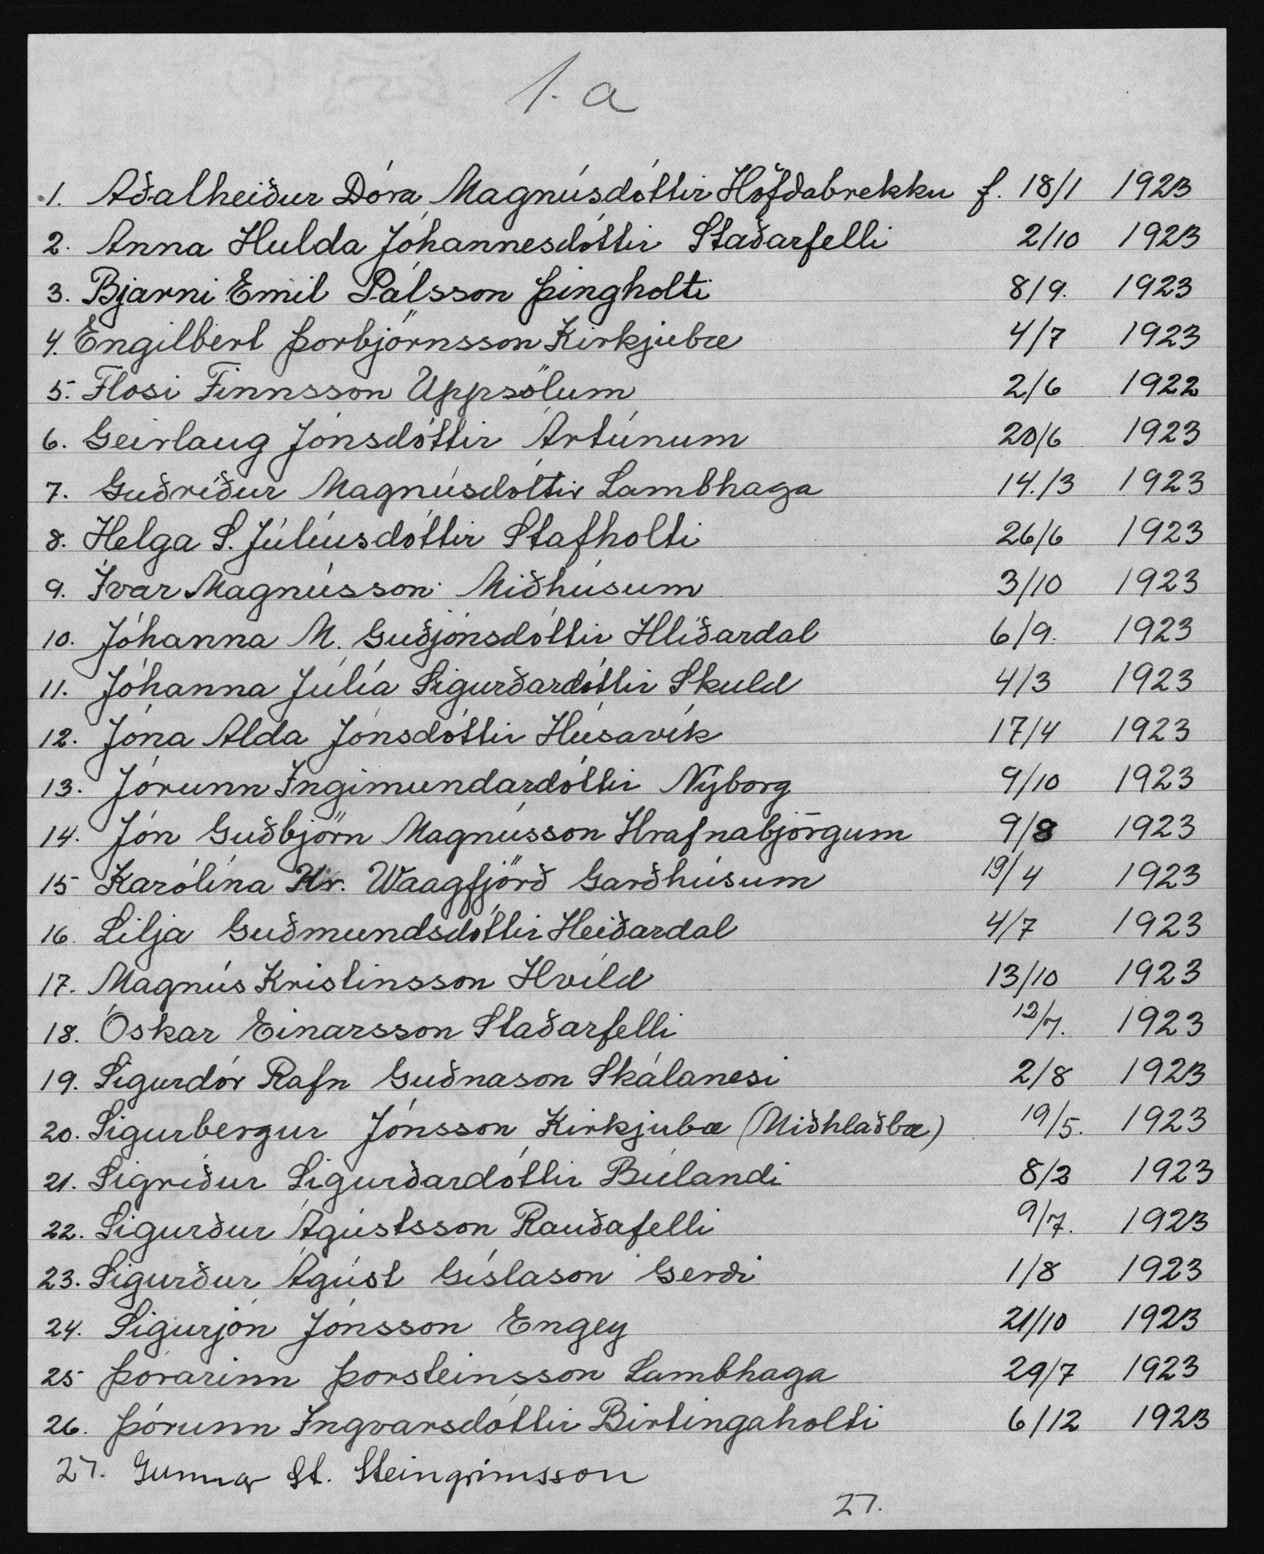 1. a
1. Aðalheiður Dóra Magnúsdóttir Höfðabrekku f. 18/1 1923
2. Anna Hulda Jóhannesdóttir Staðarfelli 2/10 1923
3. Bjarni Emil Pálsson Þingholti 8/9. 1923
4. Engilbert Þorbjörnsson Kirkjubæ 4/7 1923
5. Flosi Finnsson Uppsölum 2/6 1922
6. Geirlaug Jónsdóttir Ártúnum 20/6 1923
7. Guðríður Magnúsdóttir Lambhaga 14./3 1923
8. Helga S. Júlíusdóttir Stafholti 26/6 1923
9. Ívar Magnússon Miðhúsum 3/10 1923
10. Jóhanna M. Guðjónsdóttir Hlíðardal 6/9. 1923
11. Jóhanna Júlía Sigurðardóttir Skuld 4/3 1923
12. Jóna Alda Jónsdóttir Húsavík 17/4 1923
13. Jórunn Ingimundardóttir Nýborg 9/10 1923
14. Jón Guðbjörn Magnússon Hrafnabjörgum 9/8 1923
15 Karólína Kr. Waagfjörð Garðhúsum 19/4 1923
16. Lilja Guðmundsdóttir Heiðardal 4/7 1923
17. Magnús Kristinsson Hvíld 13/10 1923
18. Óskar Einarsson Staðarfelli 12/7. 1923
19. Sigurdór Rafn Guðnason Skálanesi 2/8 1923
20. Sigurbergur Jónsson Kirkjubæ (Miðhlaðbæ) 19/5. 1923
21. Sigríður Sigurðardóttir Búlandi 8/2 1923
22. Sigurður Ágústsson Rauðafelli 9/7. 1923
23. Sigurður Ágúst Gíslason Gerði 1/8 1923
24. Sigurjón Jónsson Engey 21/10 1923
25 Þórarinn Þorsteinsson Lambhaga 29/7 1923
26. Þórunn Ingvarsdóttir Birtingaholti 6/12 1923
27. Gunnar St. Steingrímsson
27.